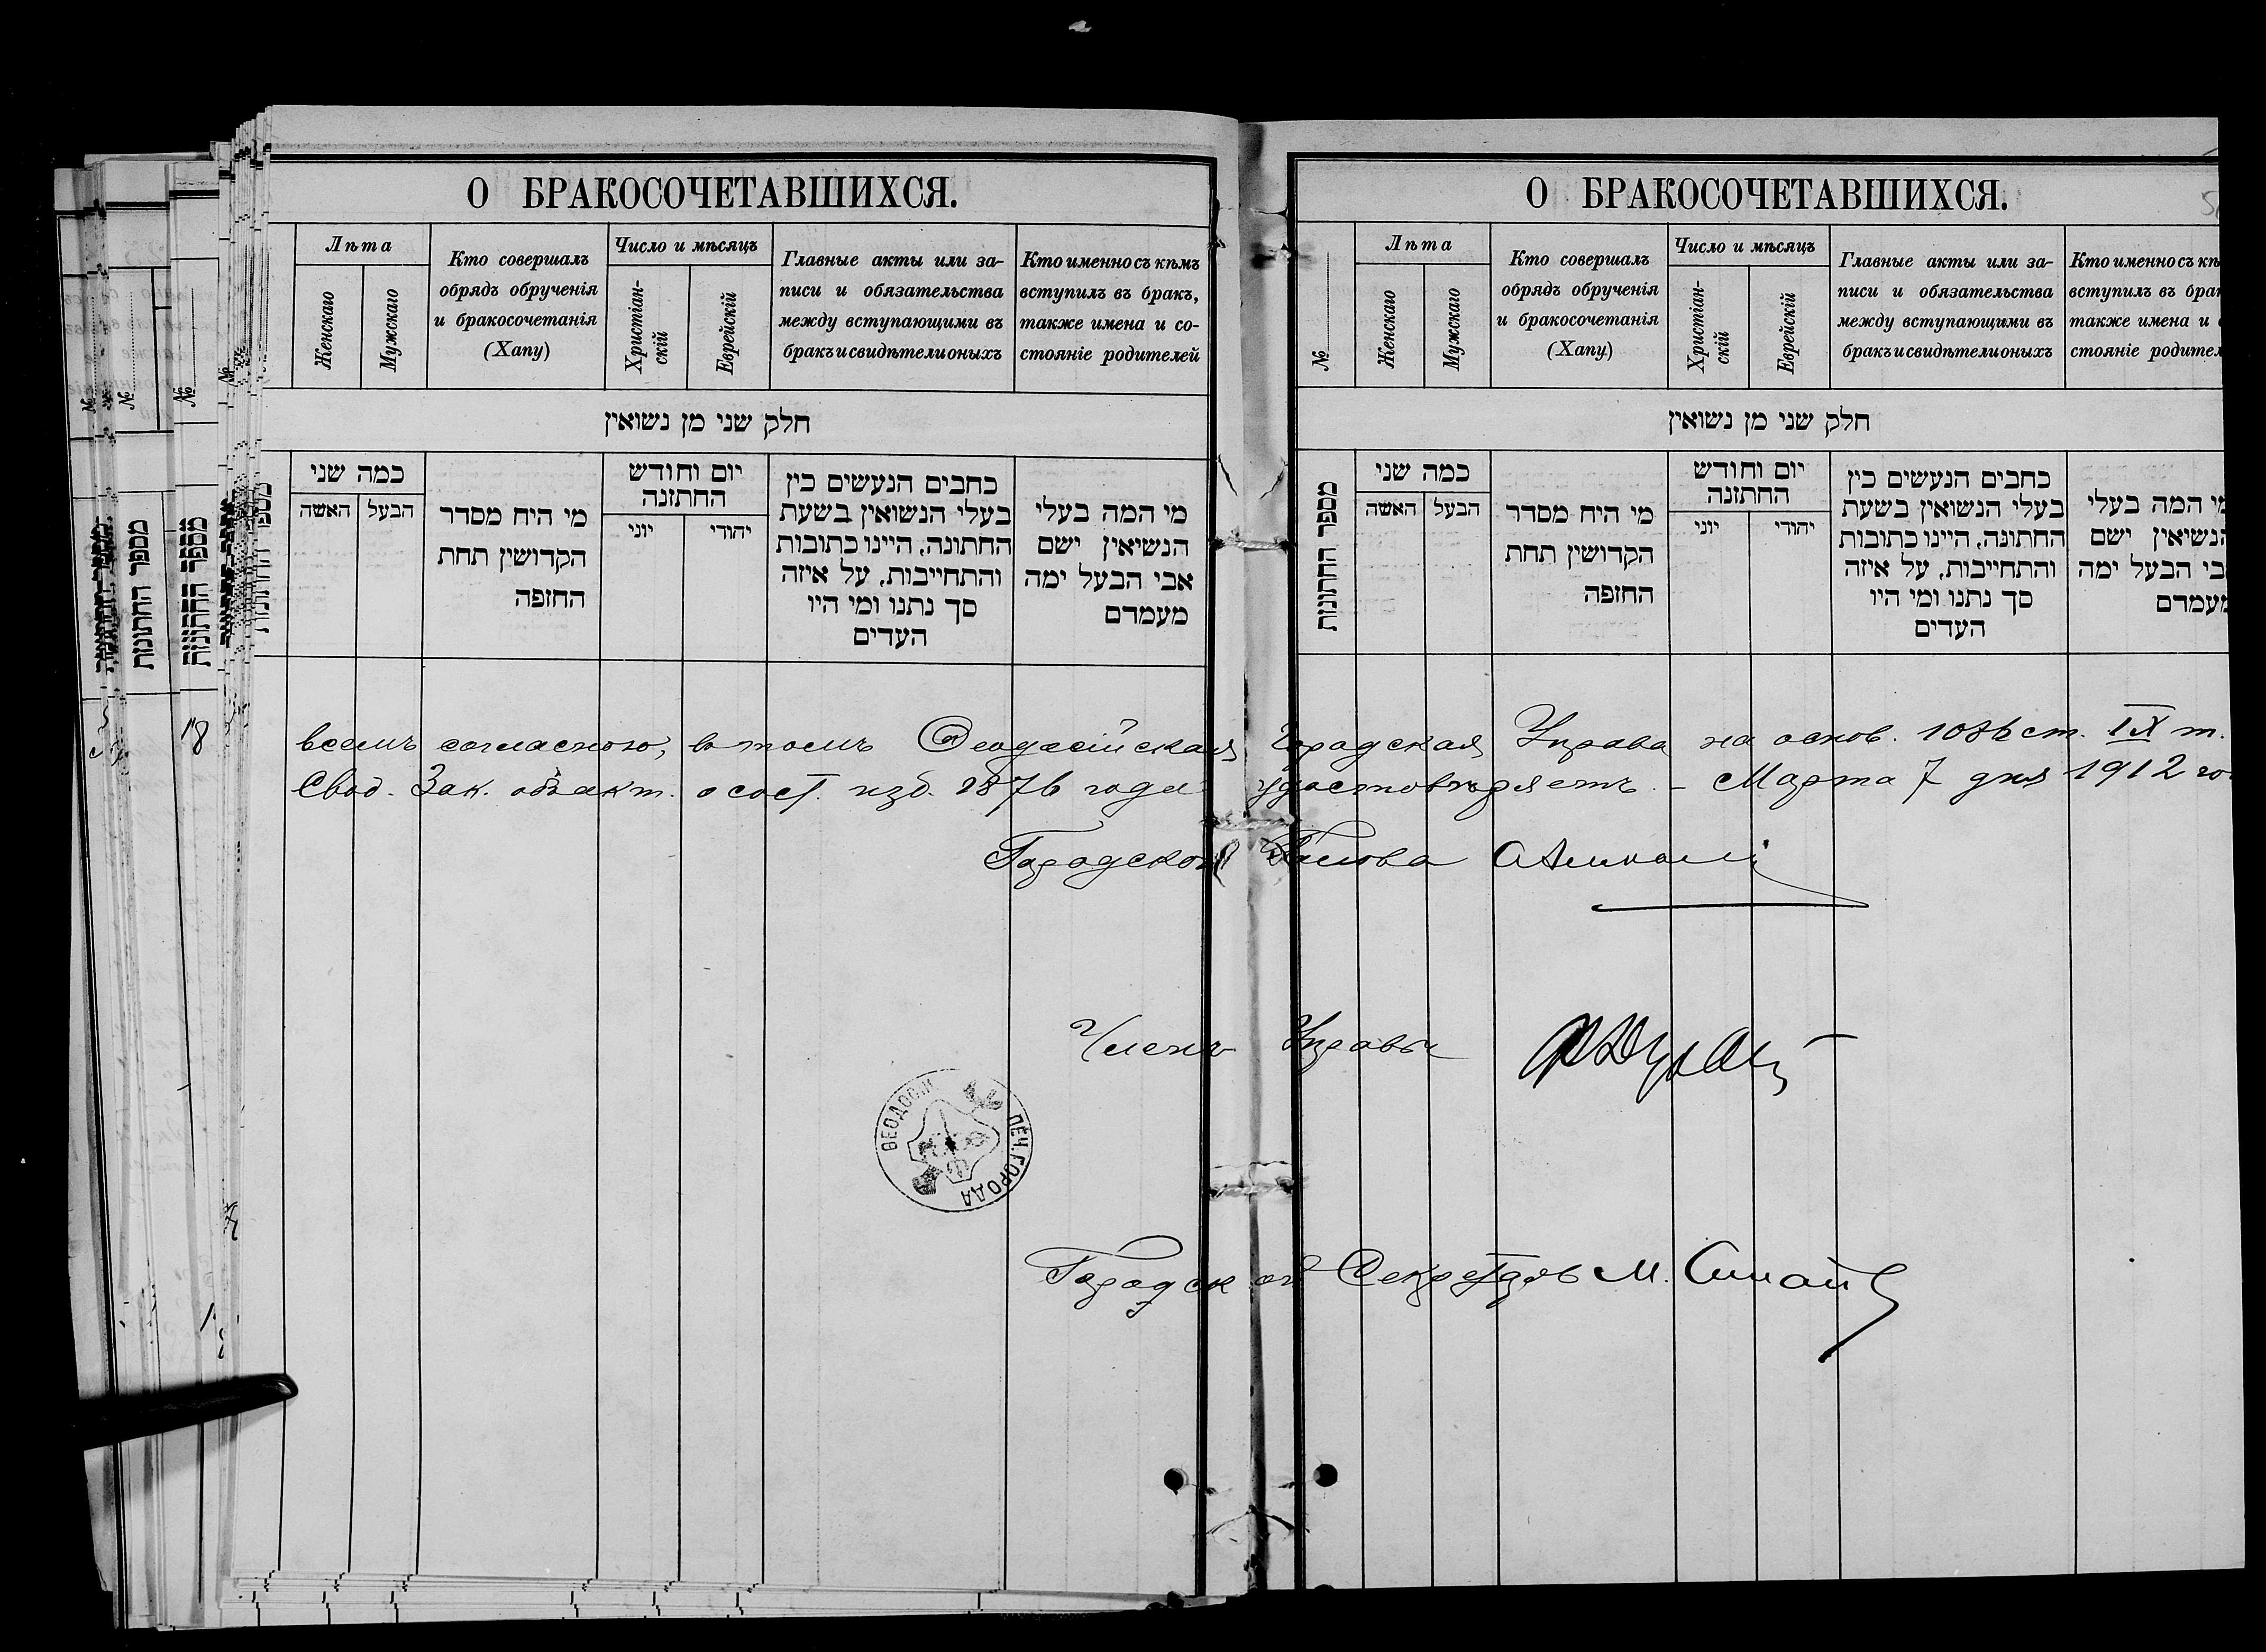 О БРАКОСОЧЕТАВШИХСЯ.
Лѣта
Женскаго
Мужскаго
Кто совершалъ
обрядъ обрученія
и бракосочетанія
(Хапу)
Число и мѣсяцъ
Христіан-
скій
Еврейскій
Главные акты или за-
писи и обязательства
между вступающими въ
бракъ и свидѣтели оныхъ
Кто именно съ кѣмъ
вступилъ въ бракъ,
также имена и со-
стояніе родителей
חלק שני מן נשואין
כמה שני
האשה
הבעל
מי היח מסדר
הקדושין תחת
החזפה
יום וחודש
החתזנה
יוני
יהודי
כחבים הנעשים כין
בעלי הנשואין בשעת
החתונה, היינו כתובות
והתחייבות, על איזה
סך נתנו ומי היו
העדים
מי המה בעלי
הנשיאין ישם
אבי הבעל ימה
מעמדם
О БРАКОСОЧЕТАВШИХСЯ.
№
Лѣта
Женскаго
Мужскаго
Кто совершалъ
обрядъ обрученія
и бракосочетанія
(Хапу)
Число и мѣсяцъ
Христіан-
скій
Еврейскій
Главные акты или за-
писи и обязательства
между вступающими въ
бракъ и свидѣтели оныхъ
Кто именно съ кѣ
вступилъ въ бра
также имена и
стояніе родител
חלק שני מן נשואין
מספר החתונות
כמה שני
האשה
הבעל
מי היח מסדר
הקדושין תחת
החזפה
יום וחודש
החתזנה
יוני
יהודי
כחבים הנעשים כין
בעלי הנשואין בשעת
החתונה, היינו כתובות
והתחייבות, על איזה
סך נתנו ומי היו
העדים
מי המה בעלי
הנשיאין ישם
אבי הבעל ימה
מעמדם
всемъ согласною, въ томъ Ѳеодосійская Городская Управа на основ. 1086 ст. IX т.
Свод. Зак. объ акт. о сост. изд. 1876 года удостовѣряетъ. – Марта 7 дня 1912 го
Городской Голова
Членъ Управы
ПЕЧ. ГОРОДА ѲЕОДОСІИ
Городской Секретарь М.
№
№
№
מספר החתונות
מספר החתונות
18